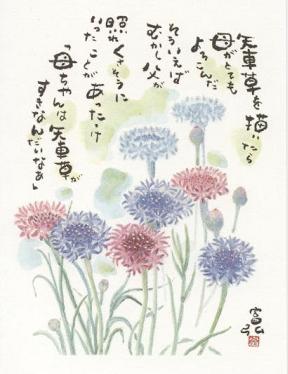 矢車草を描いたら
母がとても
よろこんだ
そういえば
むかし父が
照れくさそうに
いったことがあったっけ
「母ちゃんは矢車草が
すきなんだいなあ」
富弘